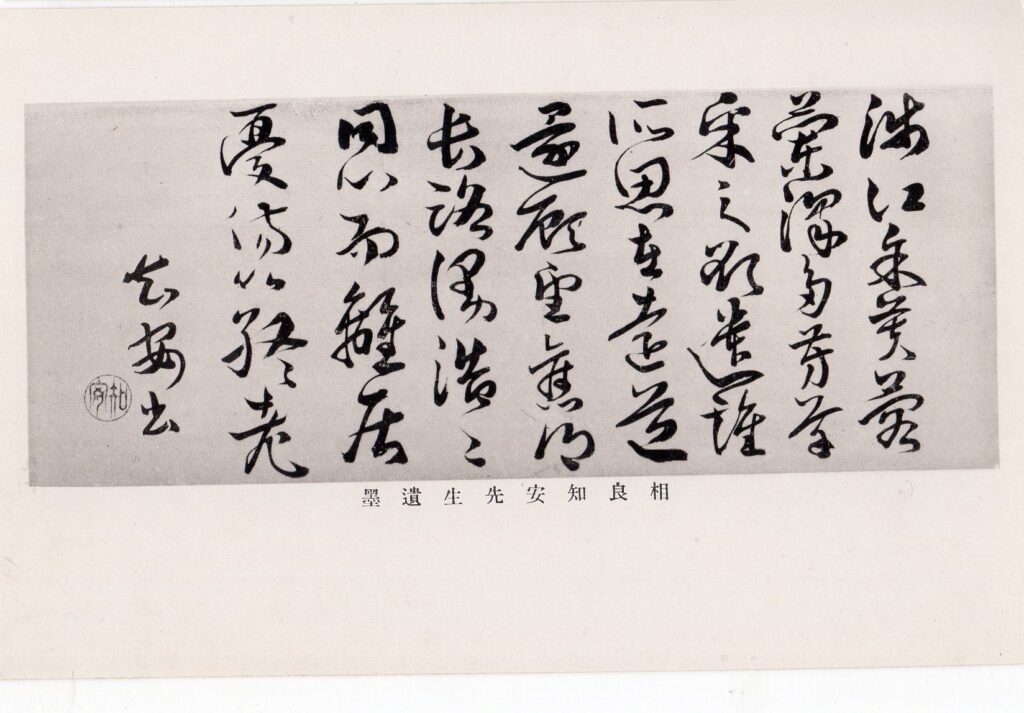 涉江采芙蓉
蘭澤多芳草
采之欲遺誰
所思在遠道
還顧望舊鄉
長路漫浩〻
同心而離居
憂傷以終老
知安書
知安
相良知安先生遺墨